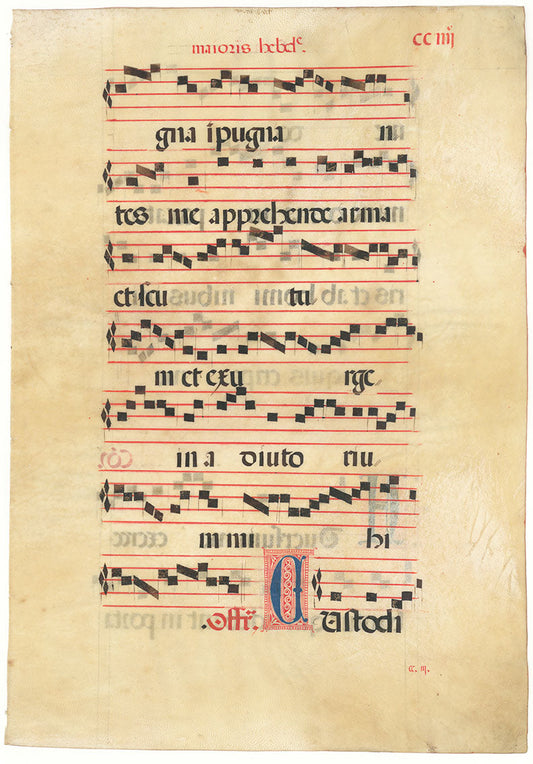 maioris hebdc.
CC iiij
gna ipugna n
tes me apprehende arma
et scu tu
m et exu rge
in a diuto riu
m mi hi
.Offr̄. CUstodi
cc. iij.